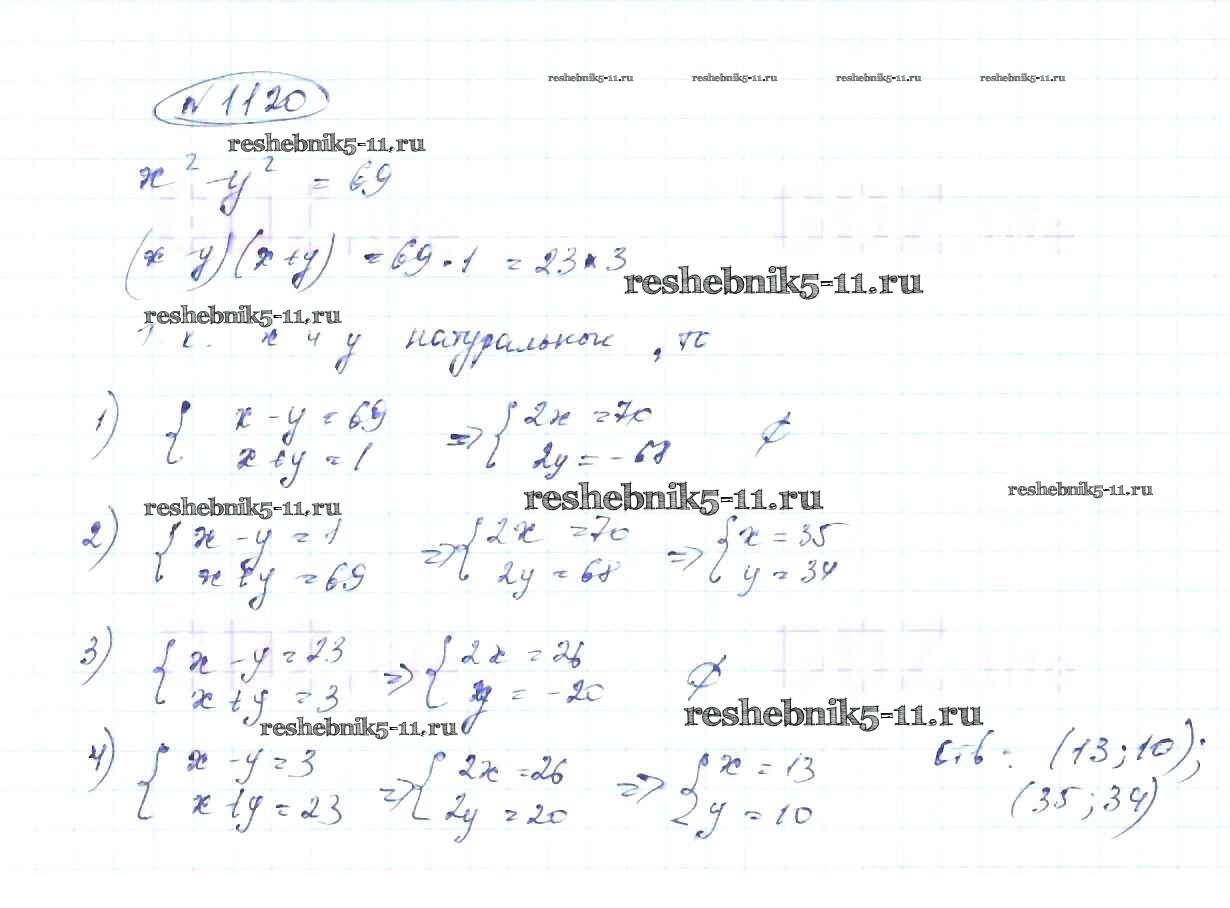 reshebnik5-11.ru reshebnik5-11.ru reshebnik5-11.ru reshebnik5-11.ru
№ 1120
reshebnik5-11.ru
x² - y² = 69
(x - y)(x + y) = 69 · 1 = 23 · 3
reshebnik5-11.ru
reshebnik5-11.ru
Т.к. x и y натуральные, то
1) { x - y = 69 => { 2x = 70 ∅
x + y = 1 2y = -68
reshebnik5-11.ru reshebnik5-11.ru reshebnik5-11.ru
2) { x - y = 1 => { 2x = 70 => { x = 35
x + y = 69 2y = 68 y = 34
3) { x - y = 23 => { 2x = 26 ∅
x + y = 3 2y = -20
reshebnik5-11.ru reshebnik5-11.ru
4) { x - y = 3 => { 2x = 26 => { x = 13
x + y = 23 2y = 20 y = 10
Отв: (13; 10);
(35; 34)